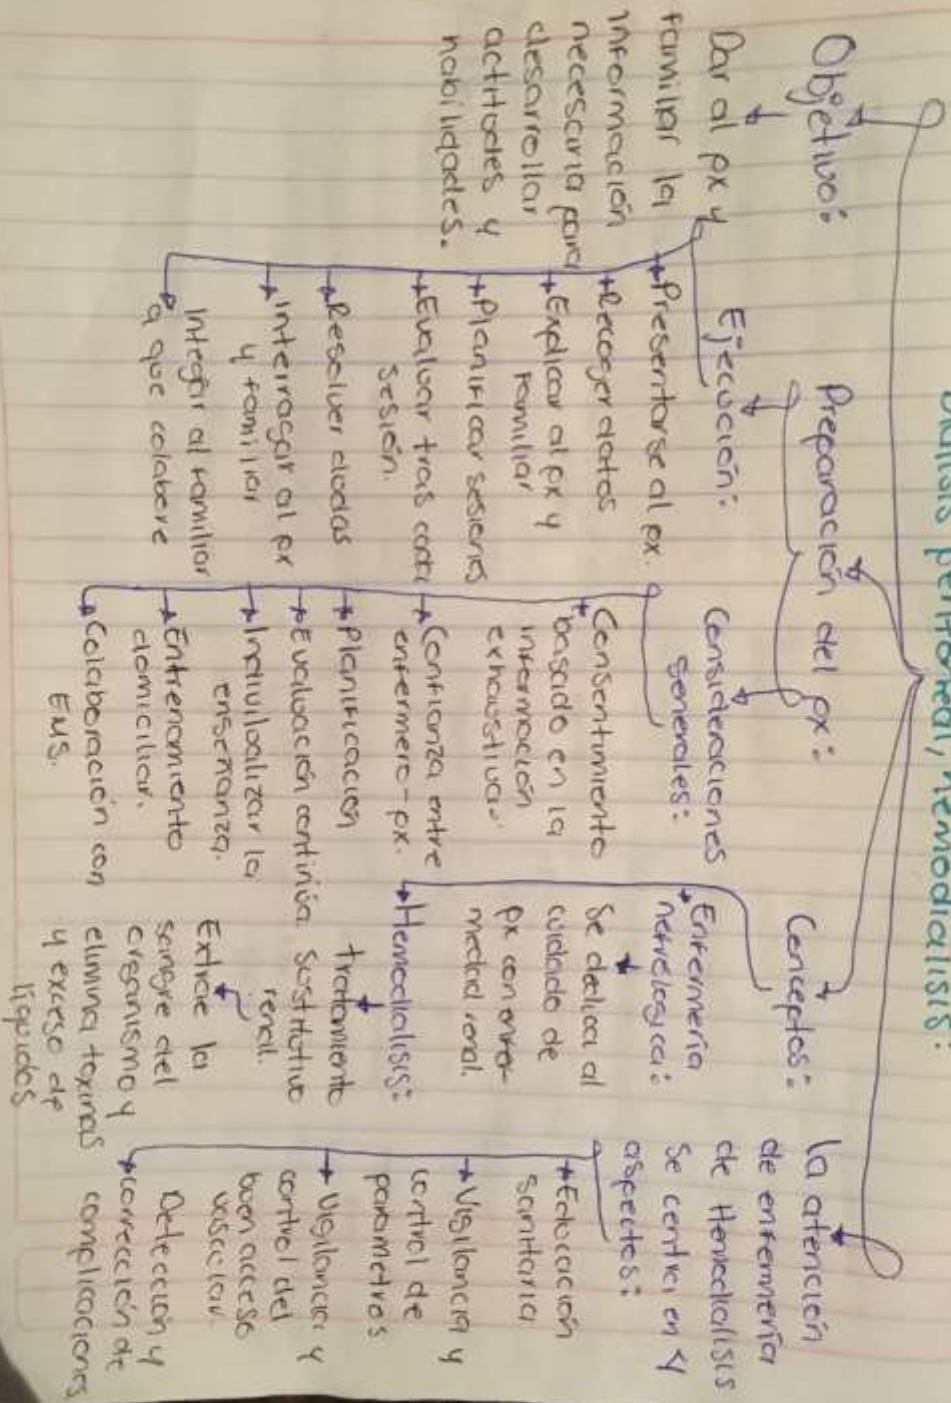 Diálisis peritoneal, hemodiálisis:
Objetivo:
Dar al px y
familiar la
información
necesaria para
desarrollar
actitudes y
habilidades.
Preparación del px:
Ejecución:
Presentarse al px.
Recoger datos
Explicar al px y
familiar
Planificar sesiones
Evaluar tras cada
sesión.
Resolver dudas
Interrogar al px
y familiar
Integrar al familiar
a que colabore
Consideraciones
generales:
Consentimiento
basado en la
información
exhaustiva.
Confianza entre
enfermero-px.
Planificación
Evaluación continúa
Indiviloalizar la
enseñanza.
Entrenamiento
domiciliar.
Colaboración con
EMS.
Conceptos:
Enfermería
nefrológica:
Se dedica al
cuidado de
px con enfer-
medad renal.
Hemodialisis:
tratamiento
Sustitutivo
renal.
Extrae la
sangre del
organismo y
elimina toxinas
y exceso de
líquidos
la atención
de enfermería
de Hemodialisis
se centra en 4
aspectos:
Educación
sanitaria
Vigilancia y
control de
parametros
Vigilancia y
control del
buen acceso
vascular.
Detección y
corrección de
complicaciones